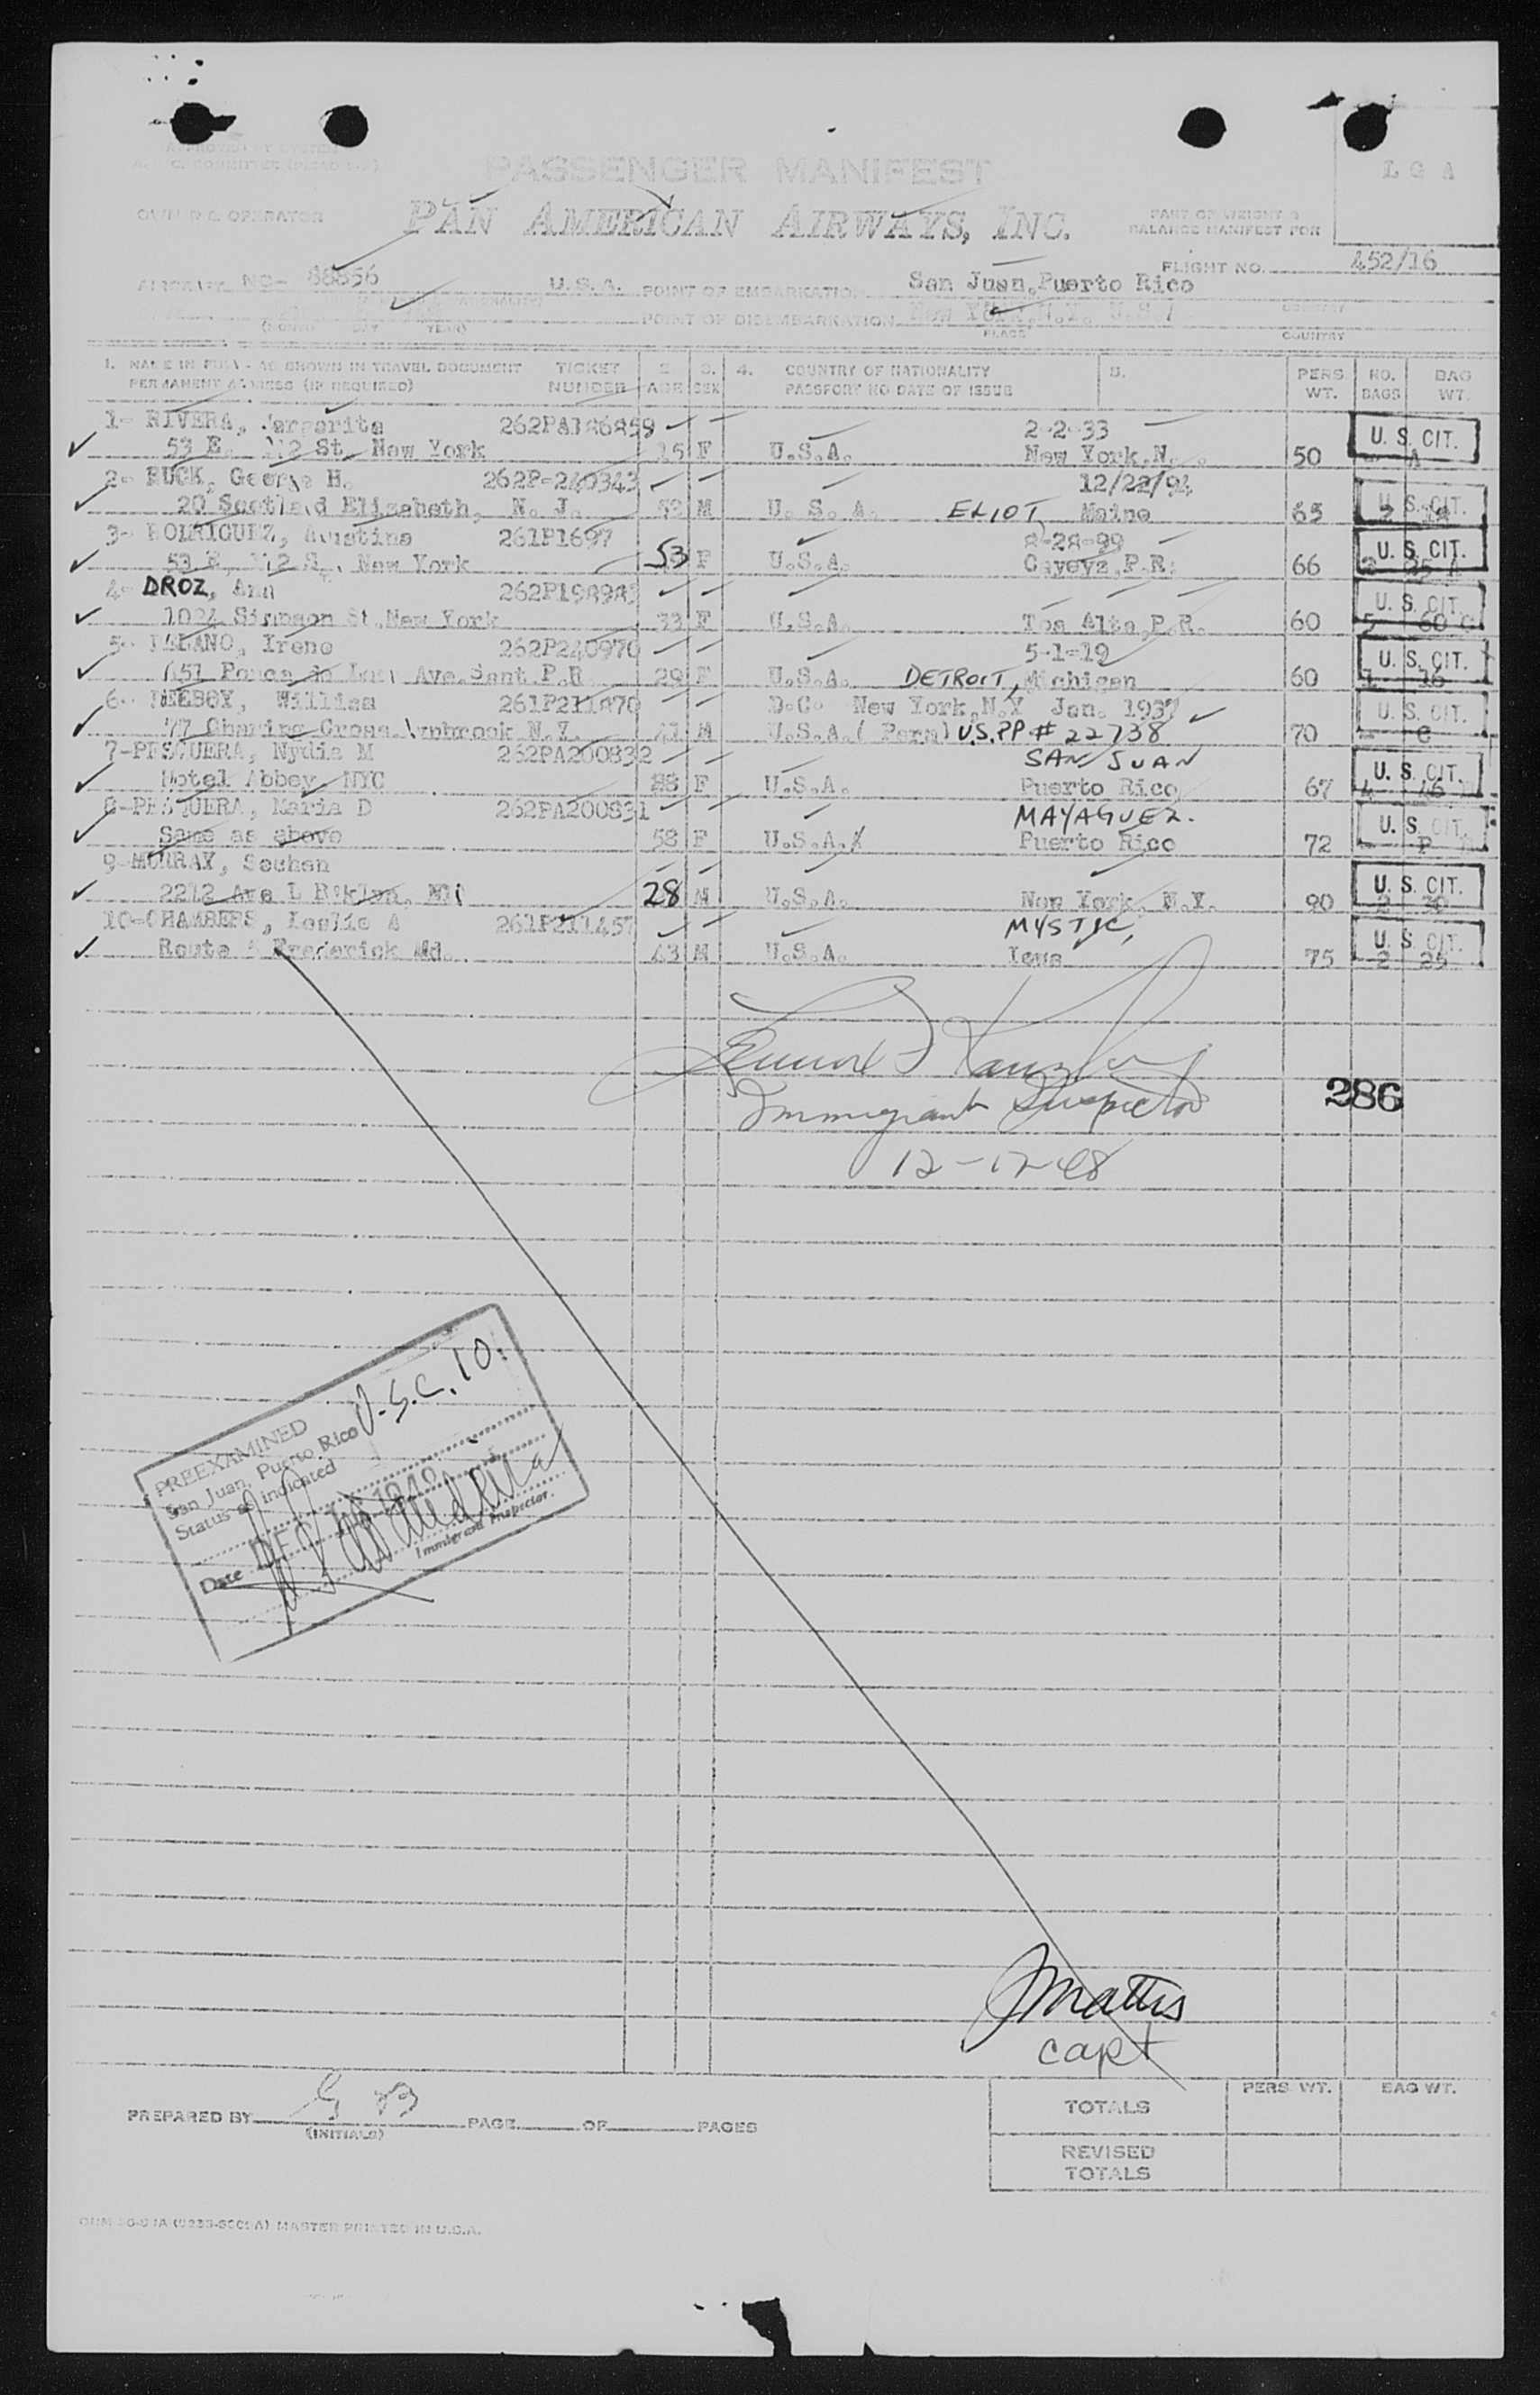 PASSENGER MANIFEST
L G A
OWNER OR OPERATOR PAN AMERICAN AIRWAYS, INC. PART OF WEIGHT &
BALANCE MANIFEST FOR
FLIGHT NO. 452/16
AIRCRAFT NC- 88856 U.S.A. POINT OF EMBARKATION San Juan, Puerto Rico
(MONTH DAY YEAR) POINT OF DISEMBARKATION New York, N.Y. U.S.A
PLACE COUNTRY
1. NAME IN FULL - AS SHOWN IN TRAVEL DOCUMENT TICKET 2. 3. 4. COUNTRY OF NATIONALITY 5. PERS NO. BAG
PERMANENT ADDRESS (IF REQUIRED) NUMBER AGE SEX PASSPORT NO DATE OF ISSUE WT. BAGS WT.
1- RIVERA, Margarita 262PA186859 2-2-33
53 E. 112 St. New York 15 F U.S.A. New York, N. 50 U. S. CIT. A
2- RUCK, George H. 262P-240343 12/22/94
20 Scotland Elizabeth, N. J. M U. S. A. ELIOT, Maine 65 U. S. CIT.
3- RODRIGUEZ, Agustina 261P1697 8-28-99
53 E. 112 S. New York 53 F U.S.A. Cayeya, P.R. 66 U. S. CIT.
4- DROZ, Ana 262P198983
Simpson St. New York 33 F U.S.A. Toa Alta, P.R. 60 U. S. CIT. 5 60
5- Irene 262P240970 5-1-19
Ponce de Leon Ave. Sant. P.R 29 F U.S.A. DETROIT, Michigan 60 U. S. CIT. 1 16
6- William 261P211870 D.C. New York, N.Y Jan. 1937
77 Charing Cross Lynbrook N.Y. 41 M U.S.A. (Perm) U.S. PP # 22738 70 U. S. CIT.
7-PESQUERA, Nydia M 262PA200832 SAN JUAN
Hotel Abbey NYC 28 F U.S.A. Puerto Rico 67 U. S. CIT. 4 46
8-PESQUERA, Maria D 262PA200831 MAYAGUEZ.
Same as above 58 F U.S.A. Puerto Rico 72 U. S. CIT. P
9-MURRAY, Sechan
2212 Ave L Bklyn. NY 28 M U.S.A. New York, N.Y. 90 U. S. CIT. 2 30
10-CHAMBERS, Leslie A 261P211457 MYSTIC,
Route Frederick Md. 43 M U.S.A. Iowa 75 U. S. CIT. 2 25
Immigrant Inspector
286
12-17-48
PREEXAMINED
San Juan, Puerto Rico U.S.C. 10.
Status as indicated
Date DEC 16 1948
Immigrant Inspector.
J Mattis
capt
PREPARED BY G B PAGE OF PAGES
(INITIALS)
PERS. WT. BAG WT.
TOTALS
REVISED
TOTALS
MASTER PRINTED IN U.S.A.